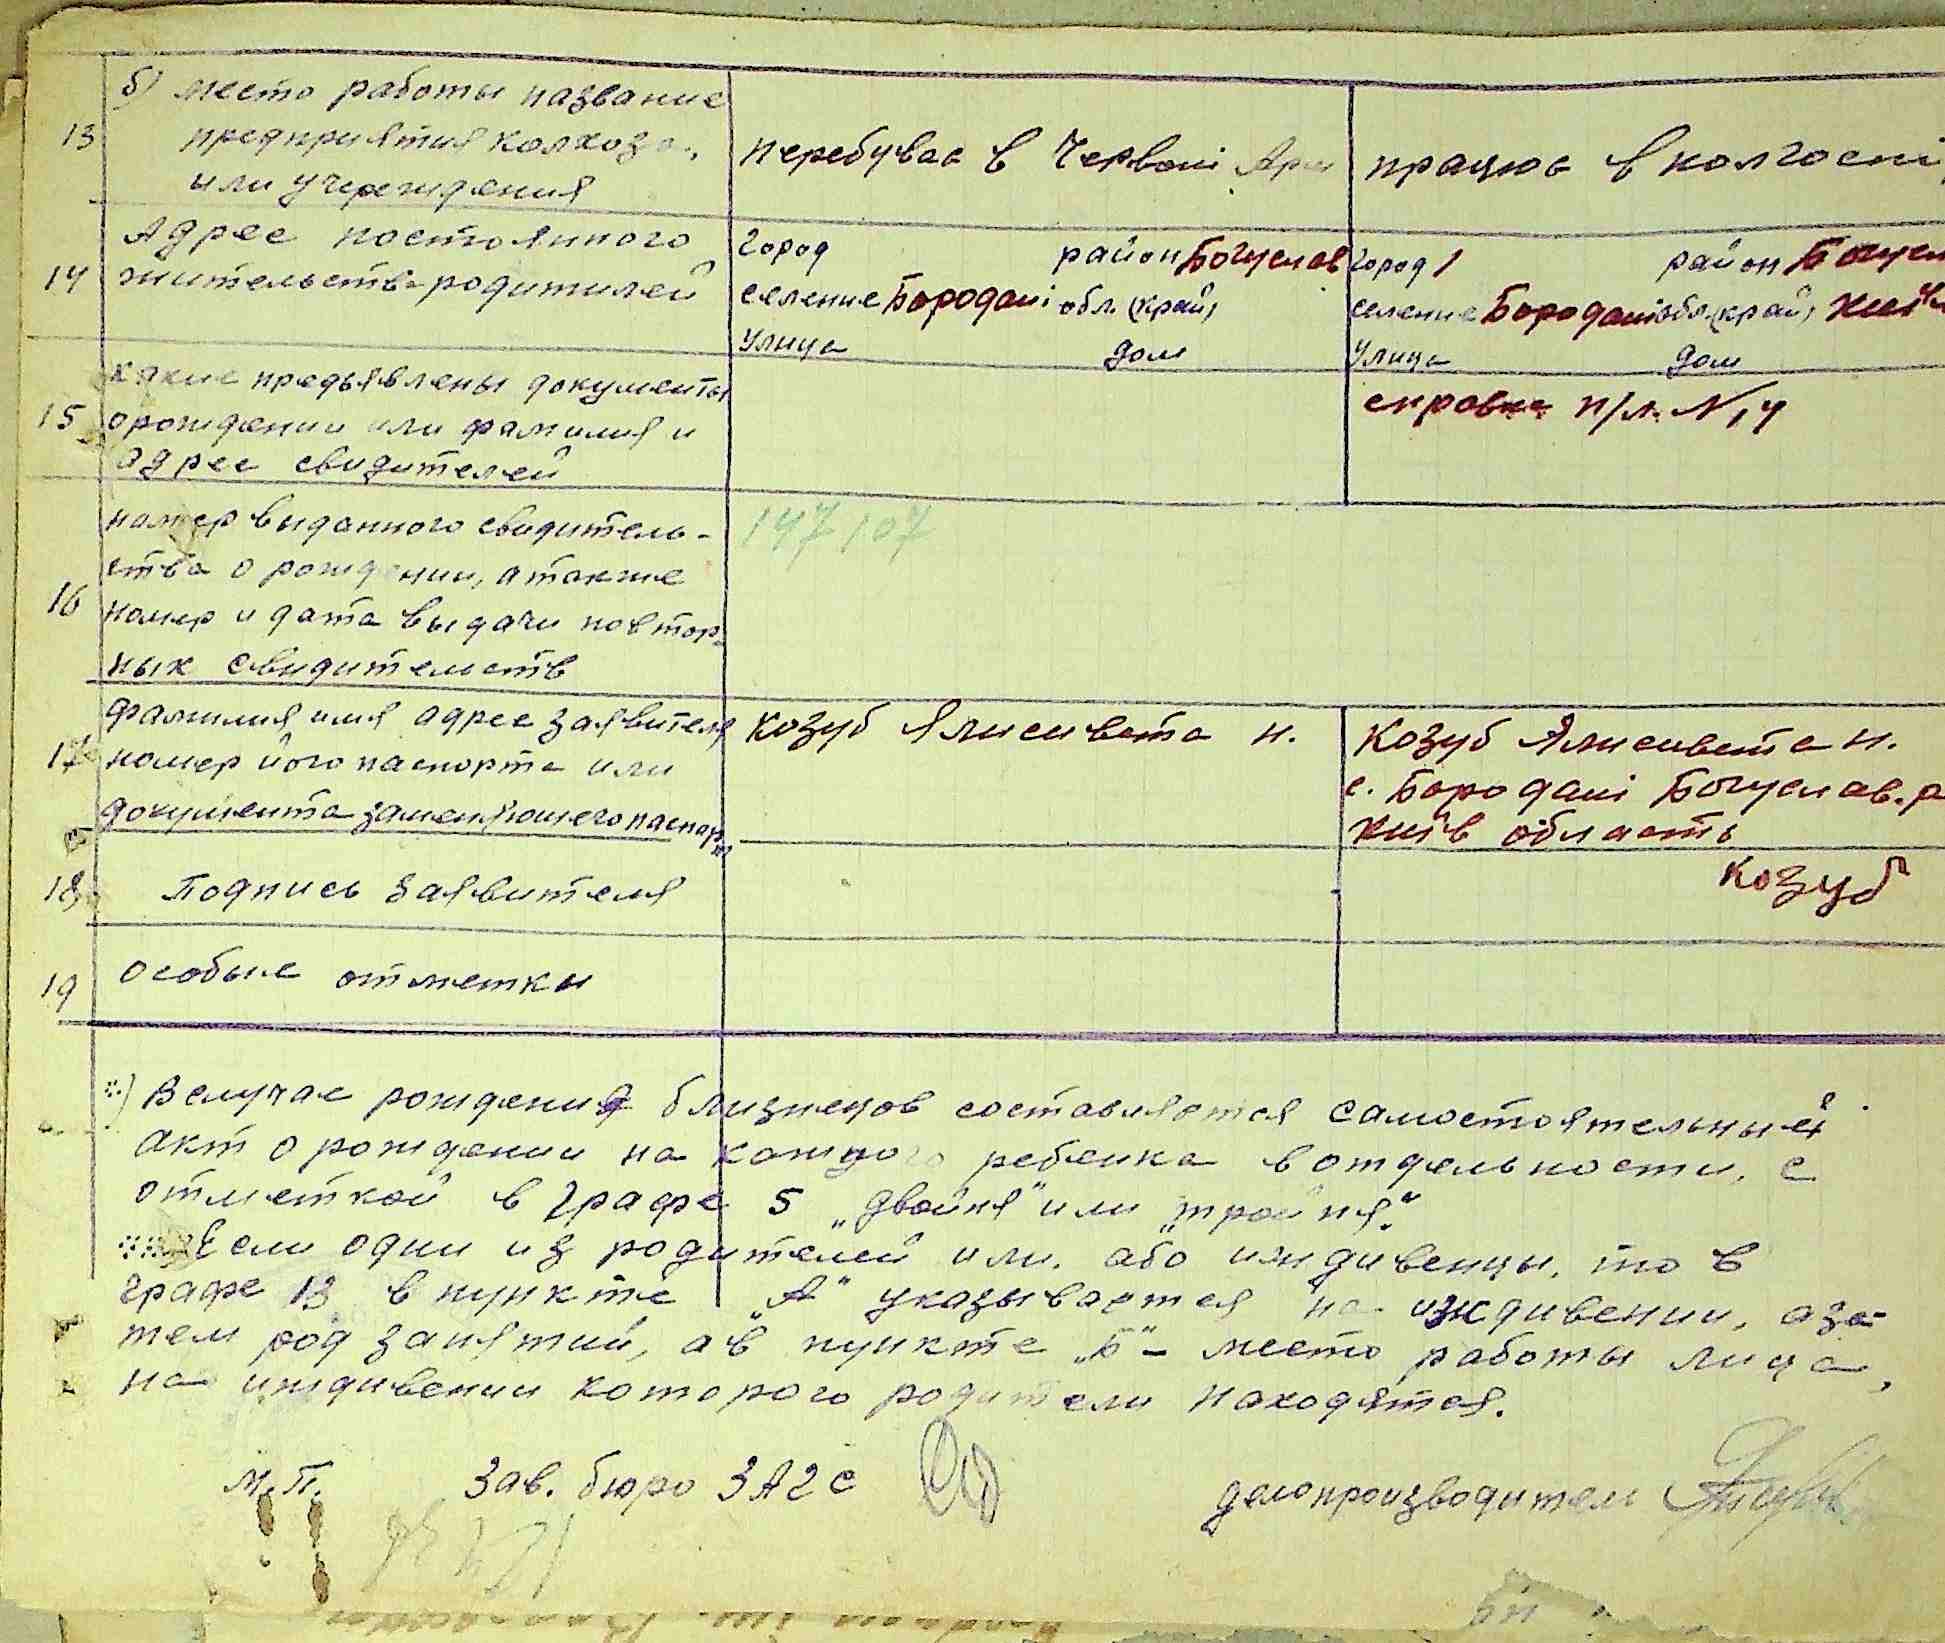 б) место работы название
13 предприятия колхоза,
или учреждения
перебуває в Червоні Арм
працює в колгоспі
Адрес постоянного
14 жительства родителей
город район Богуслав
селение Бородані обл. (край)
улица дом
город район Богусл
селение Бородані обл. (край) Київ
улица дом
какие предьявлены документы
15 о рождении или фамилия и
адрес свидителей
справка п/л. N 14
номер выданного свидитель-
ства о рождении, а также
16 номер и дата выдачи повтор-
ных свидительств
147107
фамилия имя адрес заявителя
17 номер його паспорта или
документа заменяющего паспорт
козуб Ялисивета н.
Козуб Ялисивета н.
с. Бородані Богуслав. р
Київ область
18 Подпись заявителя
козуб
19 особые отметки
) В случае рождения близнецов составляется самостоятельный
акт о рождении на каждого ребенка в отдельности, с
отметкой в графе 5 „двойня" или „тройня".
Если одни из родителей или. або иждивенцы, то в
графе 13 в пункте „А" указывается на иждивении, а за-
тем род занятий, а в пункте „б" - место работы лица,
на иждивении которого родители находятся.
м.п. Зав. бюро ЗАГС делопроизводитель